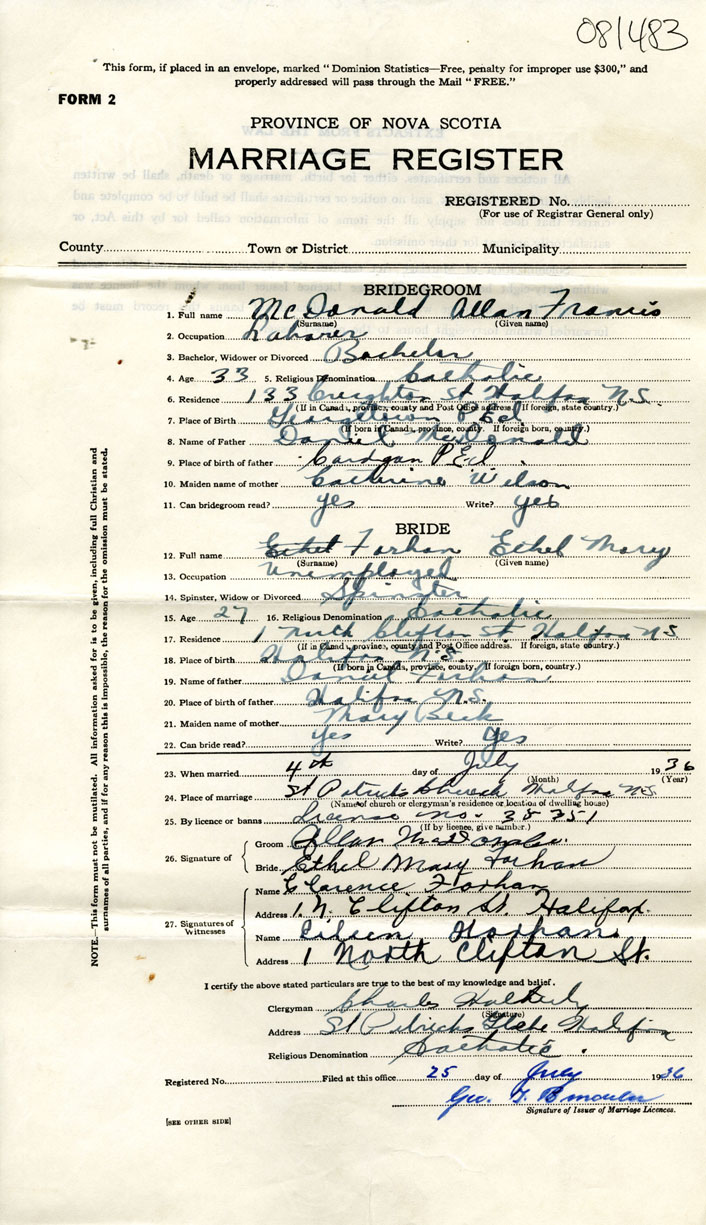 081483
This form, if placed in an envelope, marked "Dominion Statistics—Free, penalty for improper use $300," and
properly addressed will pass through the Mail "FREE."
FORM 2
PROVINCE OF NOVA SCOTIA
MARRIAGE REGISTER
REGISTERED No.
(For use of Registrar General only)
County Town or District Municipality
BRIDEGROOM
1. Full name McDonald Allan Francis
(Surname) (Given name)
2. Occupation Laborer
3. Bachelor, Widower or Divorced Bachelor
4. Age 33 5. Religious Denomination Catholic
6. Residence 133 Creighton St Halifax N.S.
(If in Canada, province, county and Post Office address. If foreign, state country.)
7. Place of Birth Georgetown P.E.I
(If born in Canada, province, county. If foreign born, country.)
8. Name of Father Daniel McDonald
9. Place of birth of father Cardgan P.E.I.
10. Maiden name of mother Catherine Wilson
11. Can bridegroom read? yes Write? yes
BRIDE
12. Full name Ethel Forhan Ethel Mary
(Surname) (Given name)
13. Occupation Unemployed
14. Spinster, Widow or Divorced Spinster
15. Age 27 16. Religious Denomination Catholic
17. Residence 1 North Clifton St Halifax N S
(If in Canada, province, county and Post Office address. If foreign, state country.)
18. Place of birth Halifax N.S.
(If born in Canada, province, county. If foreign born, country.)
19. Name of father Daniel Forhan
20. Place of birth of father Halifax N.S.
21. Maiden name of mother Mary Beck
22. Can bride read? Yes Write? Yes
23. When married 4th day of July 1936
(Month) (Year)
24. Place of marriage St Patricks Church Halifax N.S.
(Name of church or clergyman's residence or location of dwelling house)
25. By licence or banns License no. 38351
(If by licence, give number.)
26. Signature of
Groom Allan
Bride Ethel Mary Forhan
27. Signatures of Witnesses
Name Clarence Forhan
Address 1 N. Clifton St. Halifax.
Name Eileen Forhan
Address 1 North Clifton St.
I certify the above stated particulars are true to the best of my knowledge and belief.
Clergyman Charles
(Signature)
Address St Patricks Glebe Halifax
Religious Denomination Catholic.
Registered No. Filed at this office 25 day of July 1936
Geo.
Signature of Issuer of Marriage Licences.
[SEE OTHER SIDE]
NOTE.—This form must not be mutilated. All information asked for is to be given, including full Christian and
surnames of all parties, and if for any reason this is impossible, the reason for the omission must be stated.